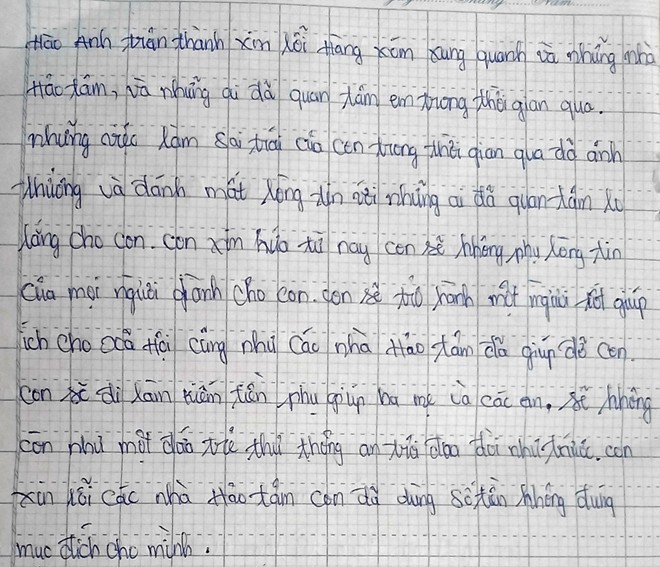 Hào Anh trân thành xin lỗi Hàng xóm xung quanh và những nhà
Hảo tâm, và những ai đã quan tâm em trong thời gian qua.
những việc làm sai trái của con trong thời gian qua đã ảnh
hưởng và đánh mất lòng tin với những ai đã quan tâm lo
lắng cho con. con xin hứa từ nay con sẽ không phụ lòng tin
của mọi người giành cho con. con sẽ trở hành một người tốt giúp
ích cho xã Hội cũng như các nhà Hảo tâm đã giúp đỡ con.
con sẽ đi làm kiếm tiền phụ giúp ba mẹ và các em, sẽ không
còn như một đứa trẻ thứ thống ăn trơi đua đòi như trước. con
xin lỗi các nhà Hảo tâm con đã dùng số tiền không đúng
mục đích cho mình.